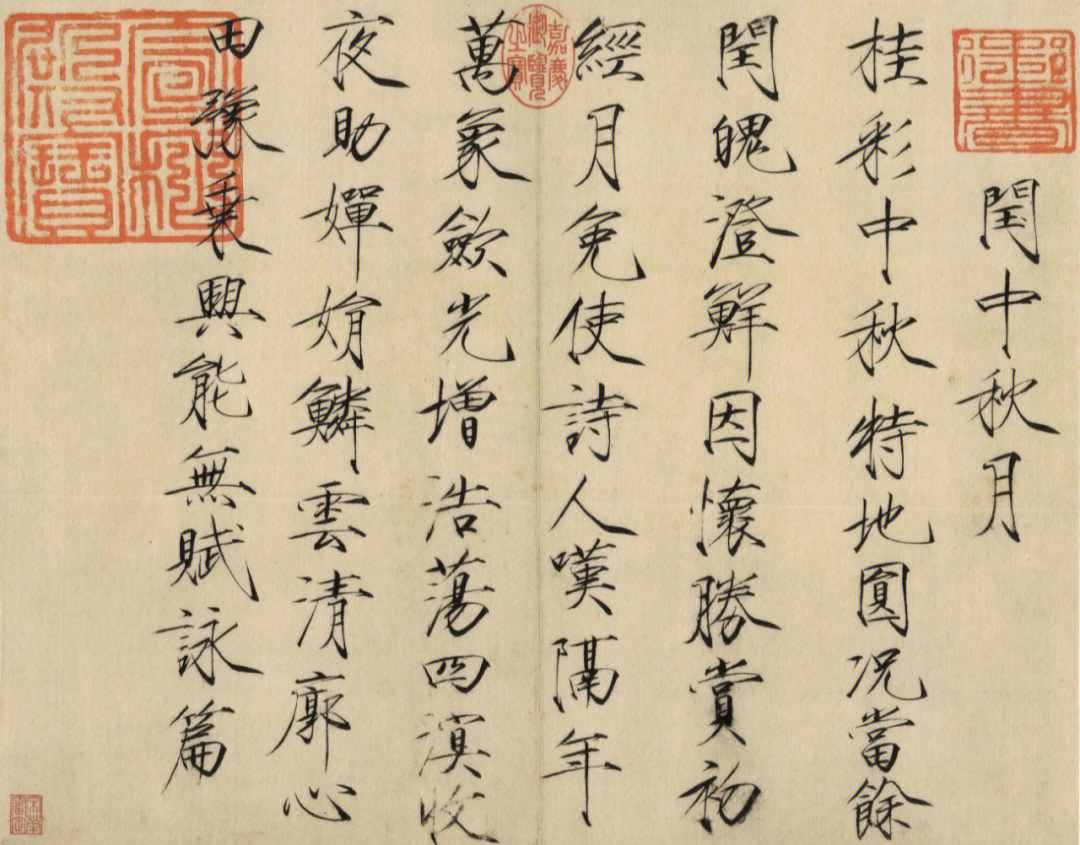 閏中秋月
桂彩中秋特地圓況當餘
閏魄澄鮮因懷勝賞初
經月免使詩人嘆隔年
萬象歛光增浩蕩四溟收
夜助嬋娟鱗雲清廓心
田豫乘興能無賦詠篇
嘉慶御覽之寶